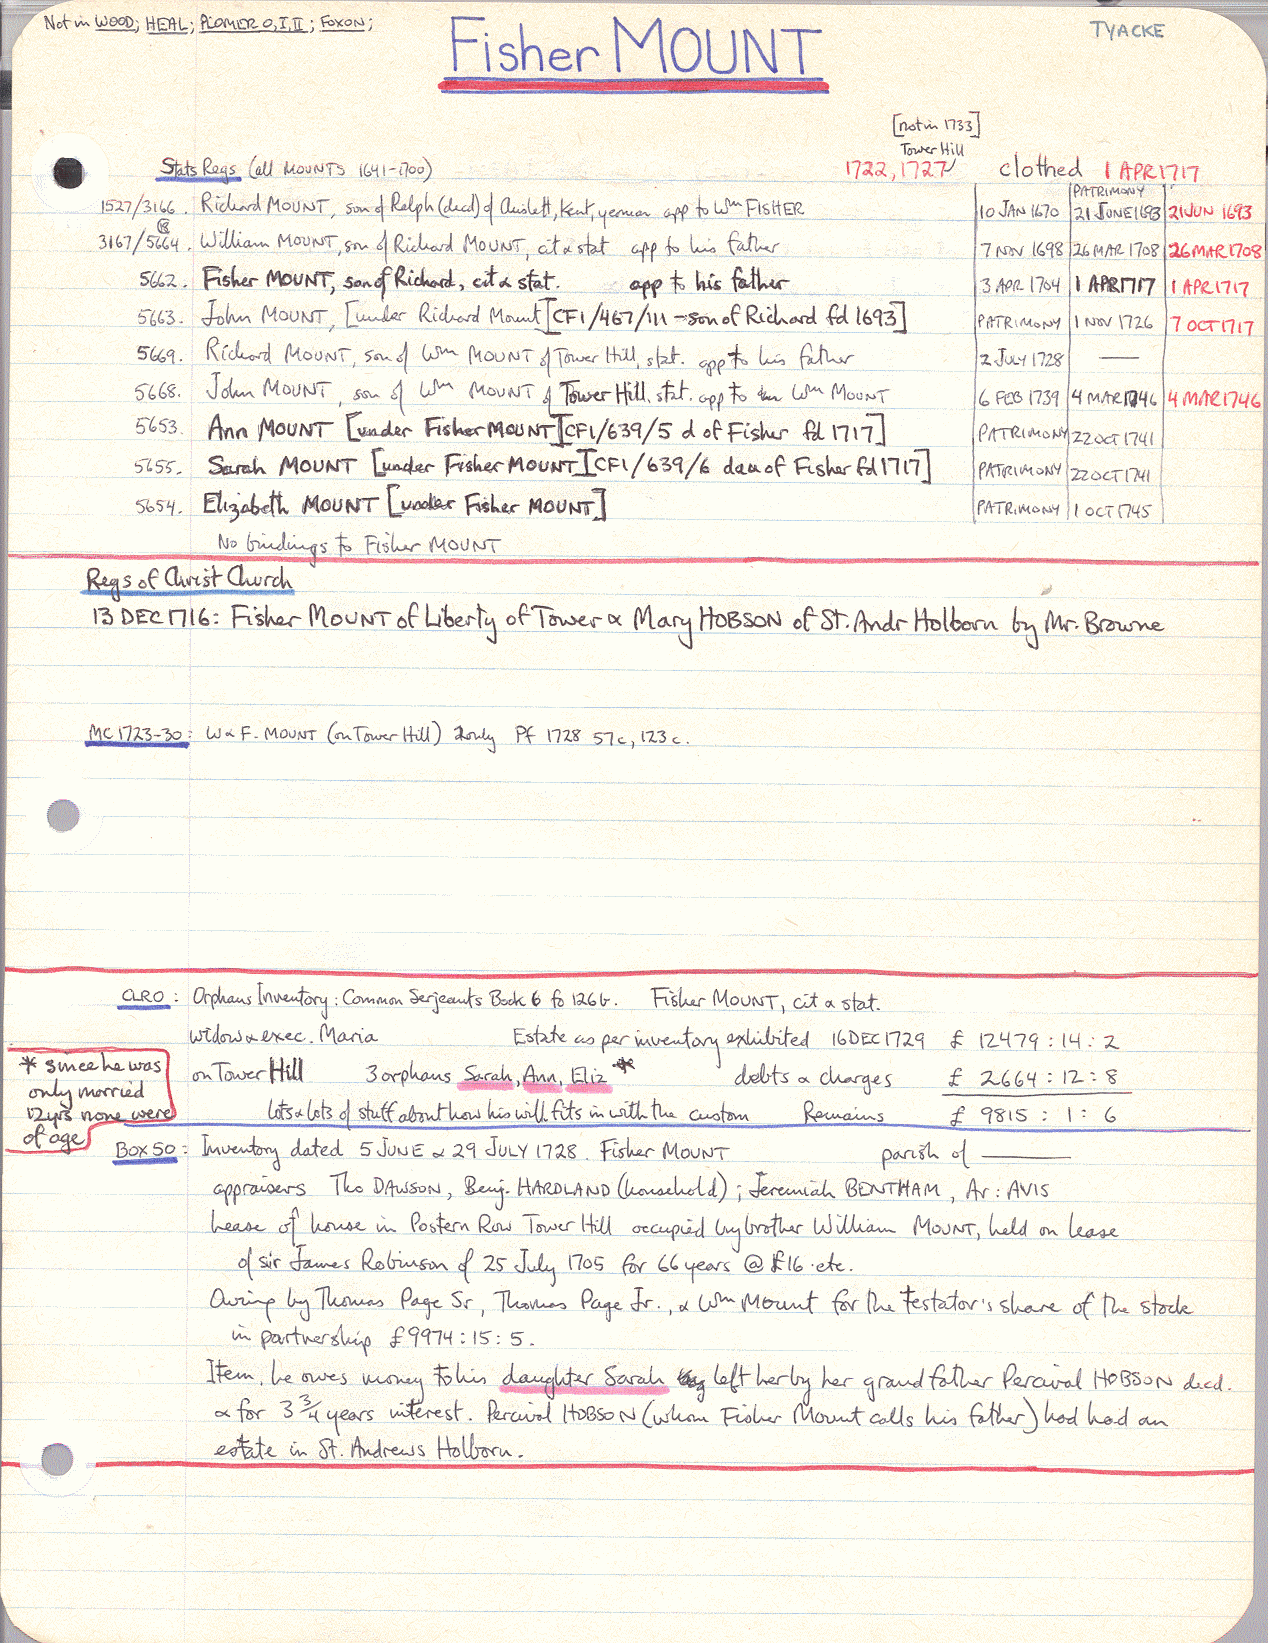 Not in WOOD; HEAL; PLOMER O, I, II; FOXON;
TYACKE
Fisher MOUNT
[not in 1733]
Tower Hill
Stats Regs (all MOUNTS 1641-1700) 1722, 1727 clothed 1 APR 1717
PATRIMONY
1527/3166. Richard MOUNT, son of Ralph (decd) of Chislett, Kent, yeoman app to Wm FISHER 10 JAN 1670 21 JUNE 1693 21 JUN 1693
3167/5664. William MOUNT, son of Richard MOUNT, cit & stat app to his father 7 NOV 1698 26 MAR 1708 26 MAR 1708
5662. Fisher MOUNT, son of Richard, cit & stat. app to his father 3 APR 1704 1 APR 1717 1 APR 1717
5663. John MOUNT, [under Richard Mount] [CF1/467/111 - son of Richard fd 1693] PATRIMONY 1 NOV 1726 7 OCT 1717
5669. Richard MOUNT, son of Wm MOUNT of Tower Hill, stat. app to his father 2 JULY 1728 —
5668. John MOUNT, son of Wm MOUNT of Tower Hill, stat. app to Wm MOUNT 6 FEB 1739 4 MAR 1746 4 MAR 1746
5653. Ann MOUNT [under Fisher MOUNT] [CF1/639/5 d of Fisher fd 1717] PATRIMONY 22 OCT 1741
5655. Sarah MOUNT [under Fisher MOUNT] [CF1/639/6 dau of Fisher fd 1717] PATRIMONY 22 OCT 1741
5654. Elizabeth MOUNT [under Fisher MOUNT] PATRIMONY 1 OCT 1745
No bindings to Fisher MOUNT
Regs of Christ Church
13 DEC 1716: Fisher MOUNT of Liberty of Tower & Mary HOBSON of St. Andr Holborn by Mr. Browne
MC 1723-30: W & F. MOUNT (on Tower Hill) 2 only Pf 1728 57c, 123c.
CLRO: Orphans Inventory: Common Serjeants Book 6 fo 126b. Fisher MOUNT, cit & stat.
widow & exec. Maria Estate as per inventory exhibited 16 DEC 1729 £ 12479:14:2
on Tower Hill 3 orphans Sarah, Ann, Eliz * debts & charges £ 2664:12:8
lots & lots of stuff about how his will fits in with the custom Remains £ 9815:1:6
* since he was
only married
12 yrs none were
of age
BOX 50: Inventory dated 5 JUNE & 29 JULY 1728. Fisher MOUNT parish of ———
appraisers Tho DAWSON, Benj. HARDLAND (household); Jeremiah BENTHAM, Ar: AVIS
Lease of house in Postern Row Tower Hill occupied by brother William MOUNT, held on lease
of sir James Robinson of 25 July 1705 for 66 years @ £16. etc.
Owing by Thomas Page Sr, Thomas Page Jr., & Wm Mount for the testator's share of the stock
in partnership £9974:15:5.
Item, he owes money to his daughter Sarah left her by her grandfather Percival HOBSON decd.
& for 3 3/4 years interest. Percival HOBSON (whom Fisher Mount calls his father) had had an
estate in St. Andrews Holborn.